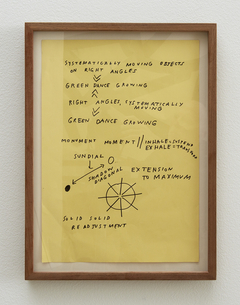 SYSTEMATICALLY MOVING OBJECTS
ON RIGHT ANGLES
GREEN DANCE GROWING
RIGHT ANGLES, SYSTEMATICALLY
MOVING
GREEN DANCE GROWING
MONUMENT MOMENT // INHALE = SUSPEND
EXHALE = TRANSFORM
SUNDIAL
SHADOW
DIAGONAL
EXTENSION
TO MAXIMUM
SOLID SOLID
READJUSTMENT